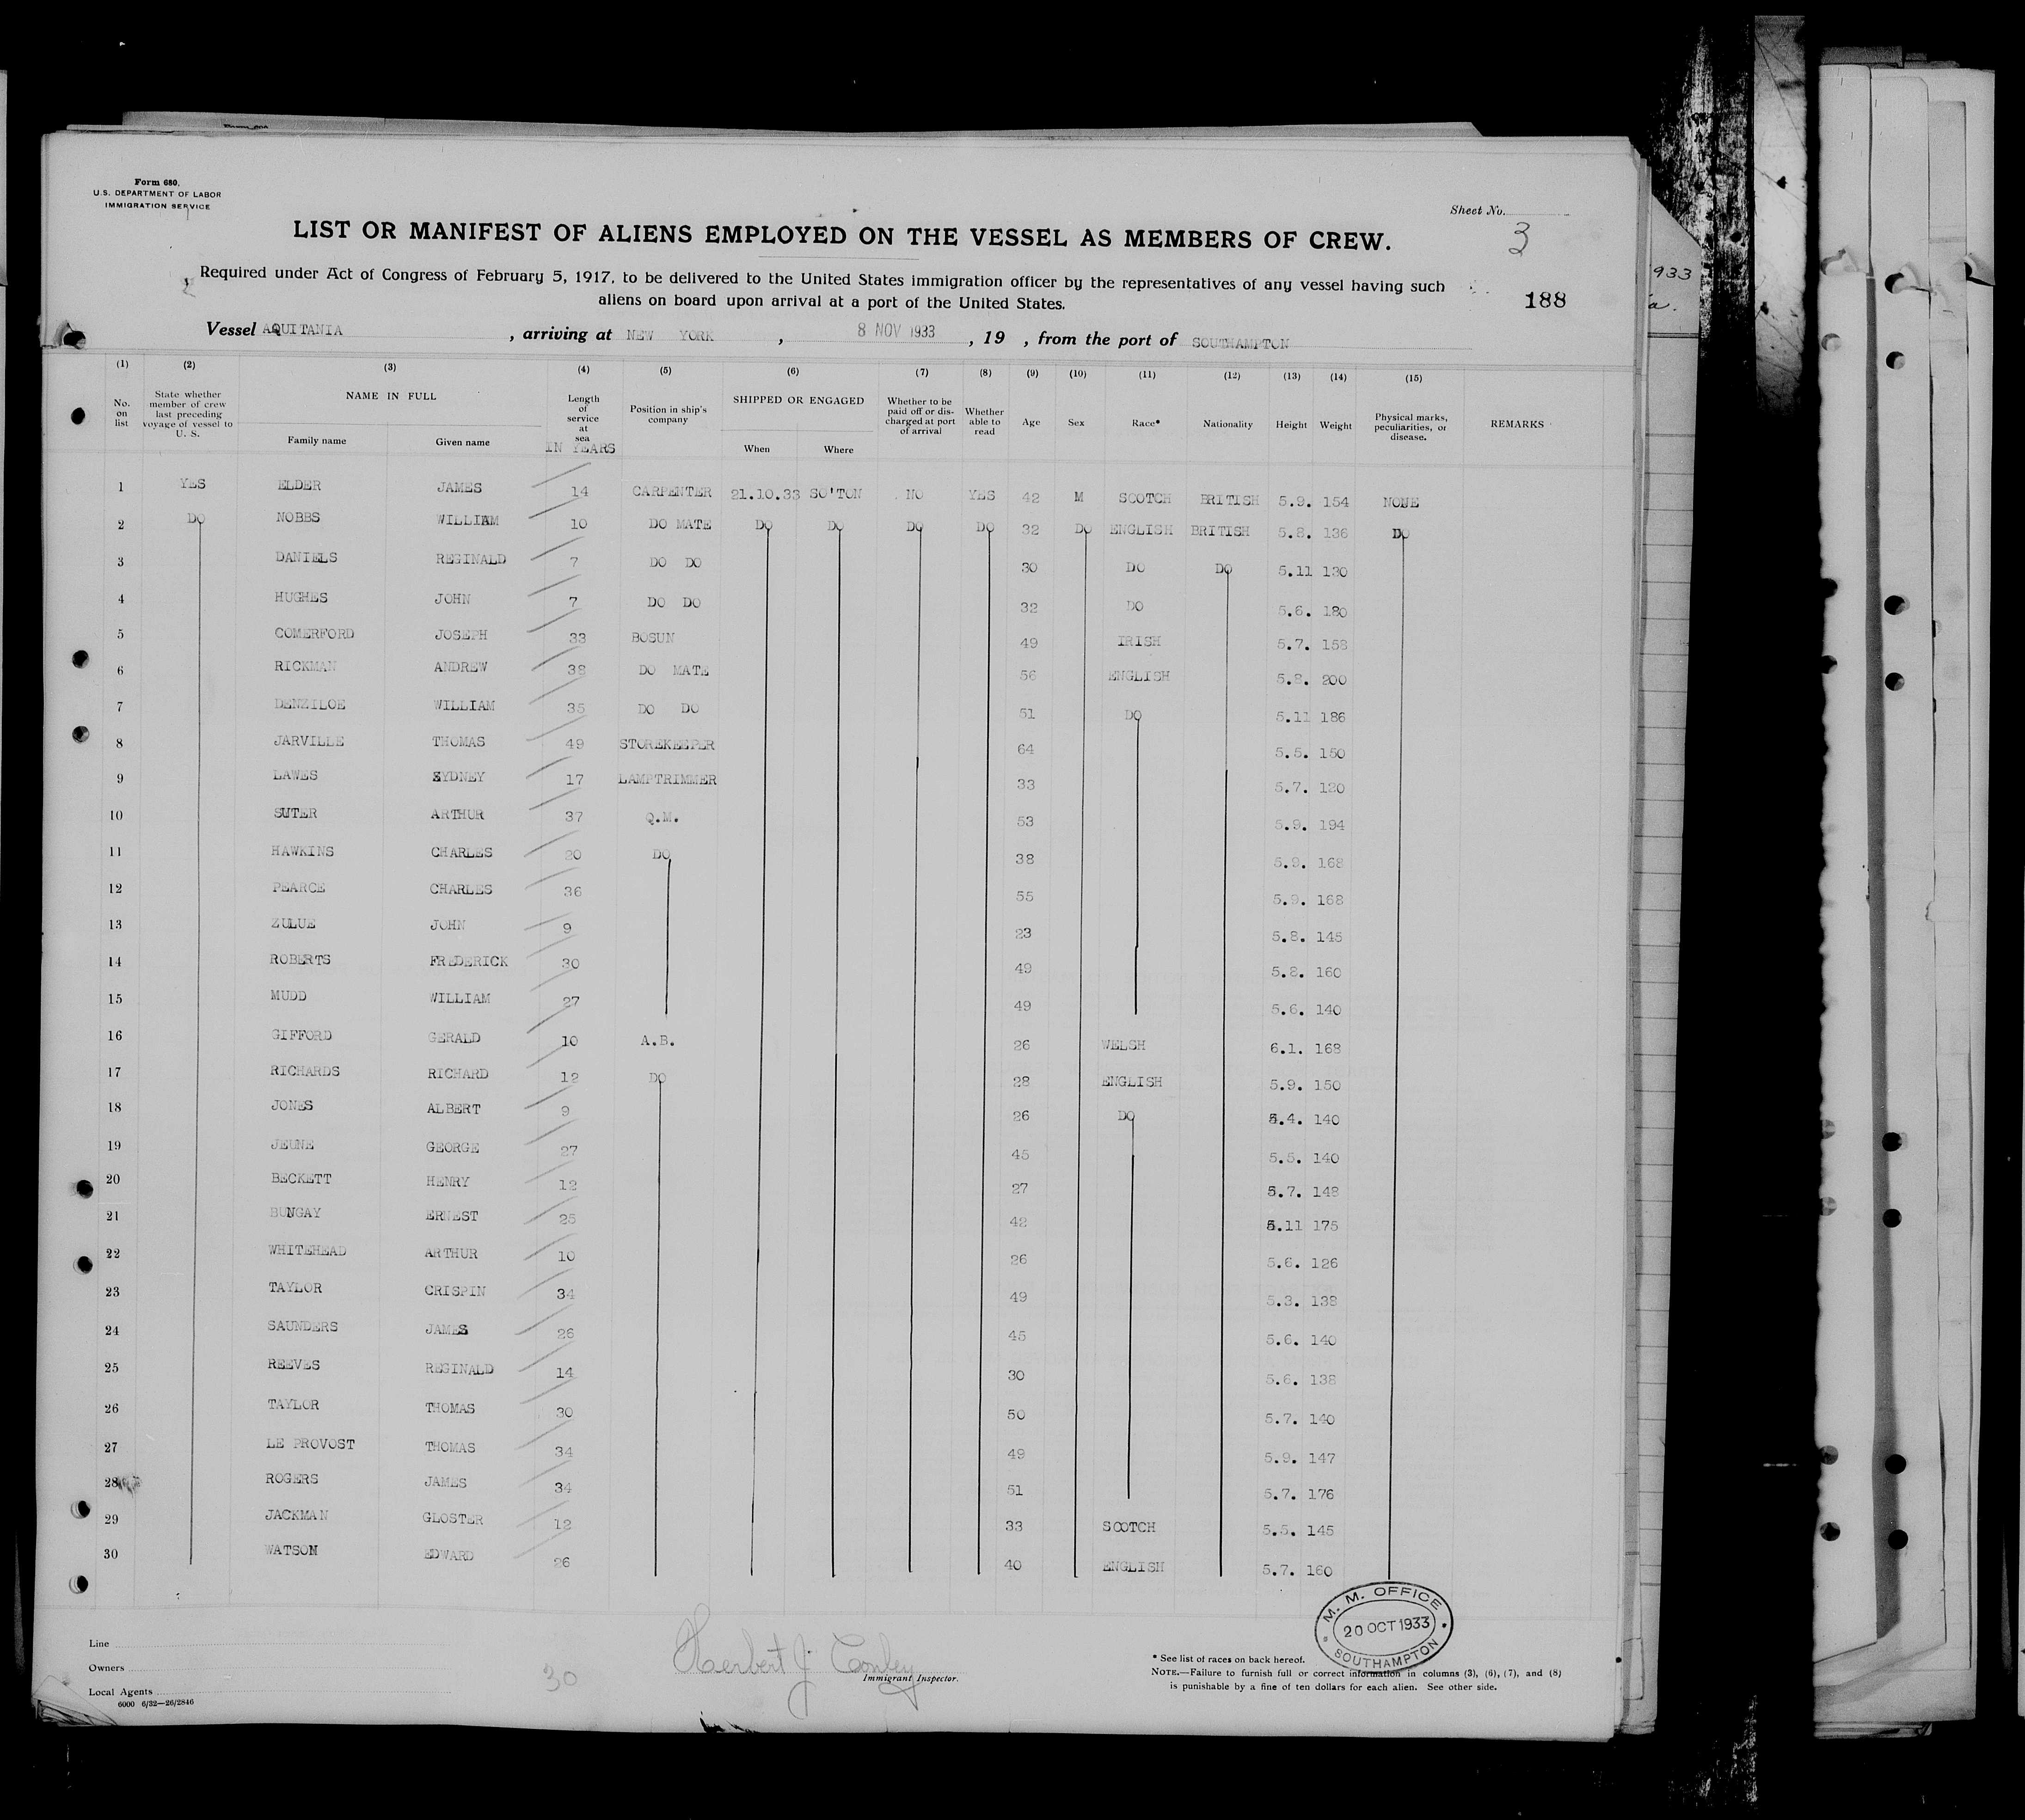 Form 680,
U.S. DEPARTMENT OF LABOR
IMMIGRATION SERVICE
Sheet No.
3
LIST OR MANIFEST OF ALIENS EMPLOYED ON THE VESSEL AS MEMBERS OF CREW.
Required under Act of Congress of February 5, 1917, to be delivered to the United States immigration officer by the representatives of any vessel having such
aliens on board upon arrival at a port of the United States.
188
933
a.
Vessel AQUITANIA , arriving at NEW YORK , 8 NOV 1933 , 19 , from the port of SOUTHAMPTON
(1) (2) (3) (4) (5) (6) (7) (8) (9) (10) (11) (12) (13) (14) (15)
No. on list State whether member of crew last preceding voyage of vessel to U. S. NAME IN FULL Family name Given name Length of service at sea IN YEARS Position in ship's company SHIPPED OR ENGAGED When Where Whether to be paid off or discharged at port of arrival Whether able to read Age Sex Race* Nationality Height Weight Physical marks, peculiarities, or disease. REMARKS
1 YES ELDER JAMES 14 CARPENTER 21.10.33 SO'TON NO YES 42 M SCOTCH BRITISH 5.9. 154 NONE
2 DO NOBBS WILLIAM 10 DO MATE DO DO DO DO 32 DO ENGLISH BRITISH 5.8. 136 DO
3 DANIELS REGINALD 7 DO DO 30 DO DO 5.11 130
4 HUGHES JOHN 7 DO DO 32 DO 5.6. 180
5 COMERFORD JOSEPH 33 BOSUN 49 IRISH 5.7. 158
6 RICKMAN ANDREW 38 DO MATE 56 ENGLISH 5.8. 200
7 DENZILOE WILLIAM 35 DO DO 51 DO 5.11 186
8 JARVILLE THOMAS 49 STOREKEEPER 64 5.5. 150
9 LAWES SYDNEY 17 LAMPTRIMMER 33 5.7. 120
10 SUTER ARTHUR 37 Q.M. 53 5.9. 194
11 HAWKINS CHARLES 20 DO 38 5.9. 168
12 PEARCE CHARLES 36 55 5.9. 168
13 ZULUE JOHN 9 23 5.8. 145
14 ROBERTS FREDERICK 30 49 5.8. 160
15 MUDD WILLIAM 27 49 5.6. 140
16 GIFFORD GERALD 10 A.B. 26 WELSH 6.1. 168
17 RICHARDS RICHARD 12 DO 28 ENGLISH 5.9. 150
18 JONES ALBERT 9 26 DO 5.4. 140
19 JEUNE GEORGE 27 45 5.5. 140
20 BECKETT HENRY 12 27 5.7. 148
21 BUNGAY ERNEST 25 42 5.11 175
22 WHITEHEAD ARTHUR 10 26 5.6. 126
23 TAYLOR CRISPIN 34 49 5.3. 138
24 SAUNDERS JAMES 26 45 5.6. 140
25 REEVES REGINALD 14 30 5.6. 138
26 TAYLOR THOMAS 30 50 5.7. 140
27 LE PROVOST THOMAS 34 49 5.9. 147
28 ROGERS JAMES 34 51 5.7. 176
29 JACKMAN GLOSTER 12 33 SCOTCH 5.5. 145
30 WATSON EDWARD 26 40 ENGLISH 5.7. 160
M. M. OFFICE
20 OCT 1933
SOUTHAMPTON
Line
Owners
Local Agents
6000 6/32—26/2846
30
Herbert J. Conley
Immigrant Inspector.
* See list of races on back hereof.
NOTE.—Failure to furnish full or correct information in columns (3), (6), (7), and (8)
is punishable by a fine of ten dollars for each alien. See other side.